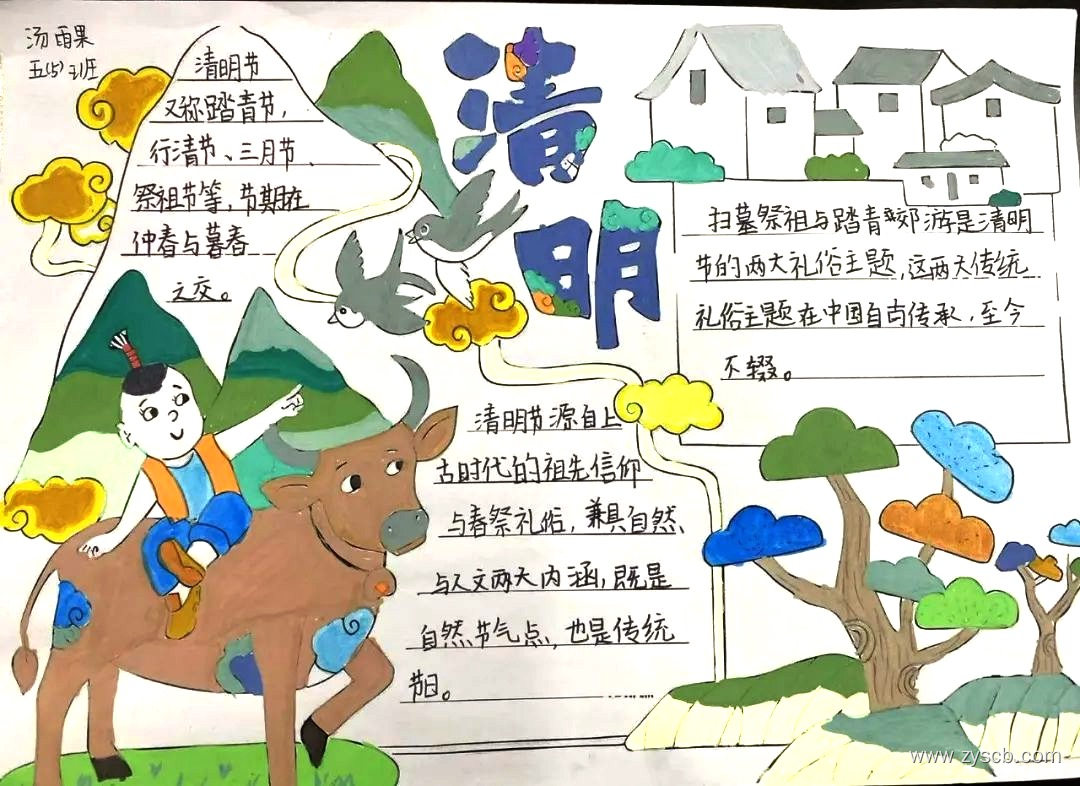 汤雨果
五(5)班
清明
清明节
又称踏青节,
行清节、三月节、
祭祖节等,节期在
仲春与暮春
之交。
扫墓祭祖与踏青郊游是清明
节的两大礼俗主题,这两大传统
礼俗主题在中国自古传承,至今
不辍。
清明节源自上
古时代的祖先信仰
与春祭礼俗,兼具自然、
与人文两大内涵,既是
自然节气点,也是传统
节日。
www.zyscb.com